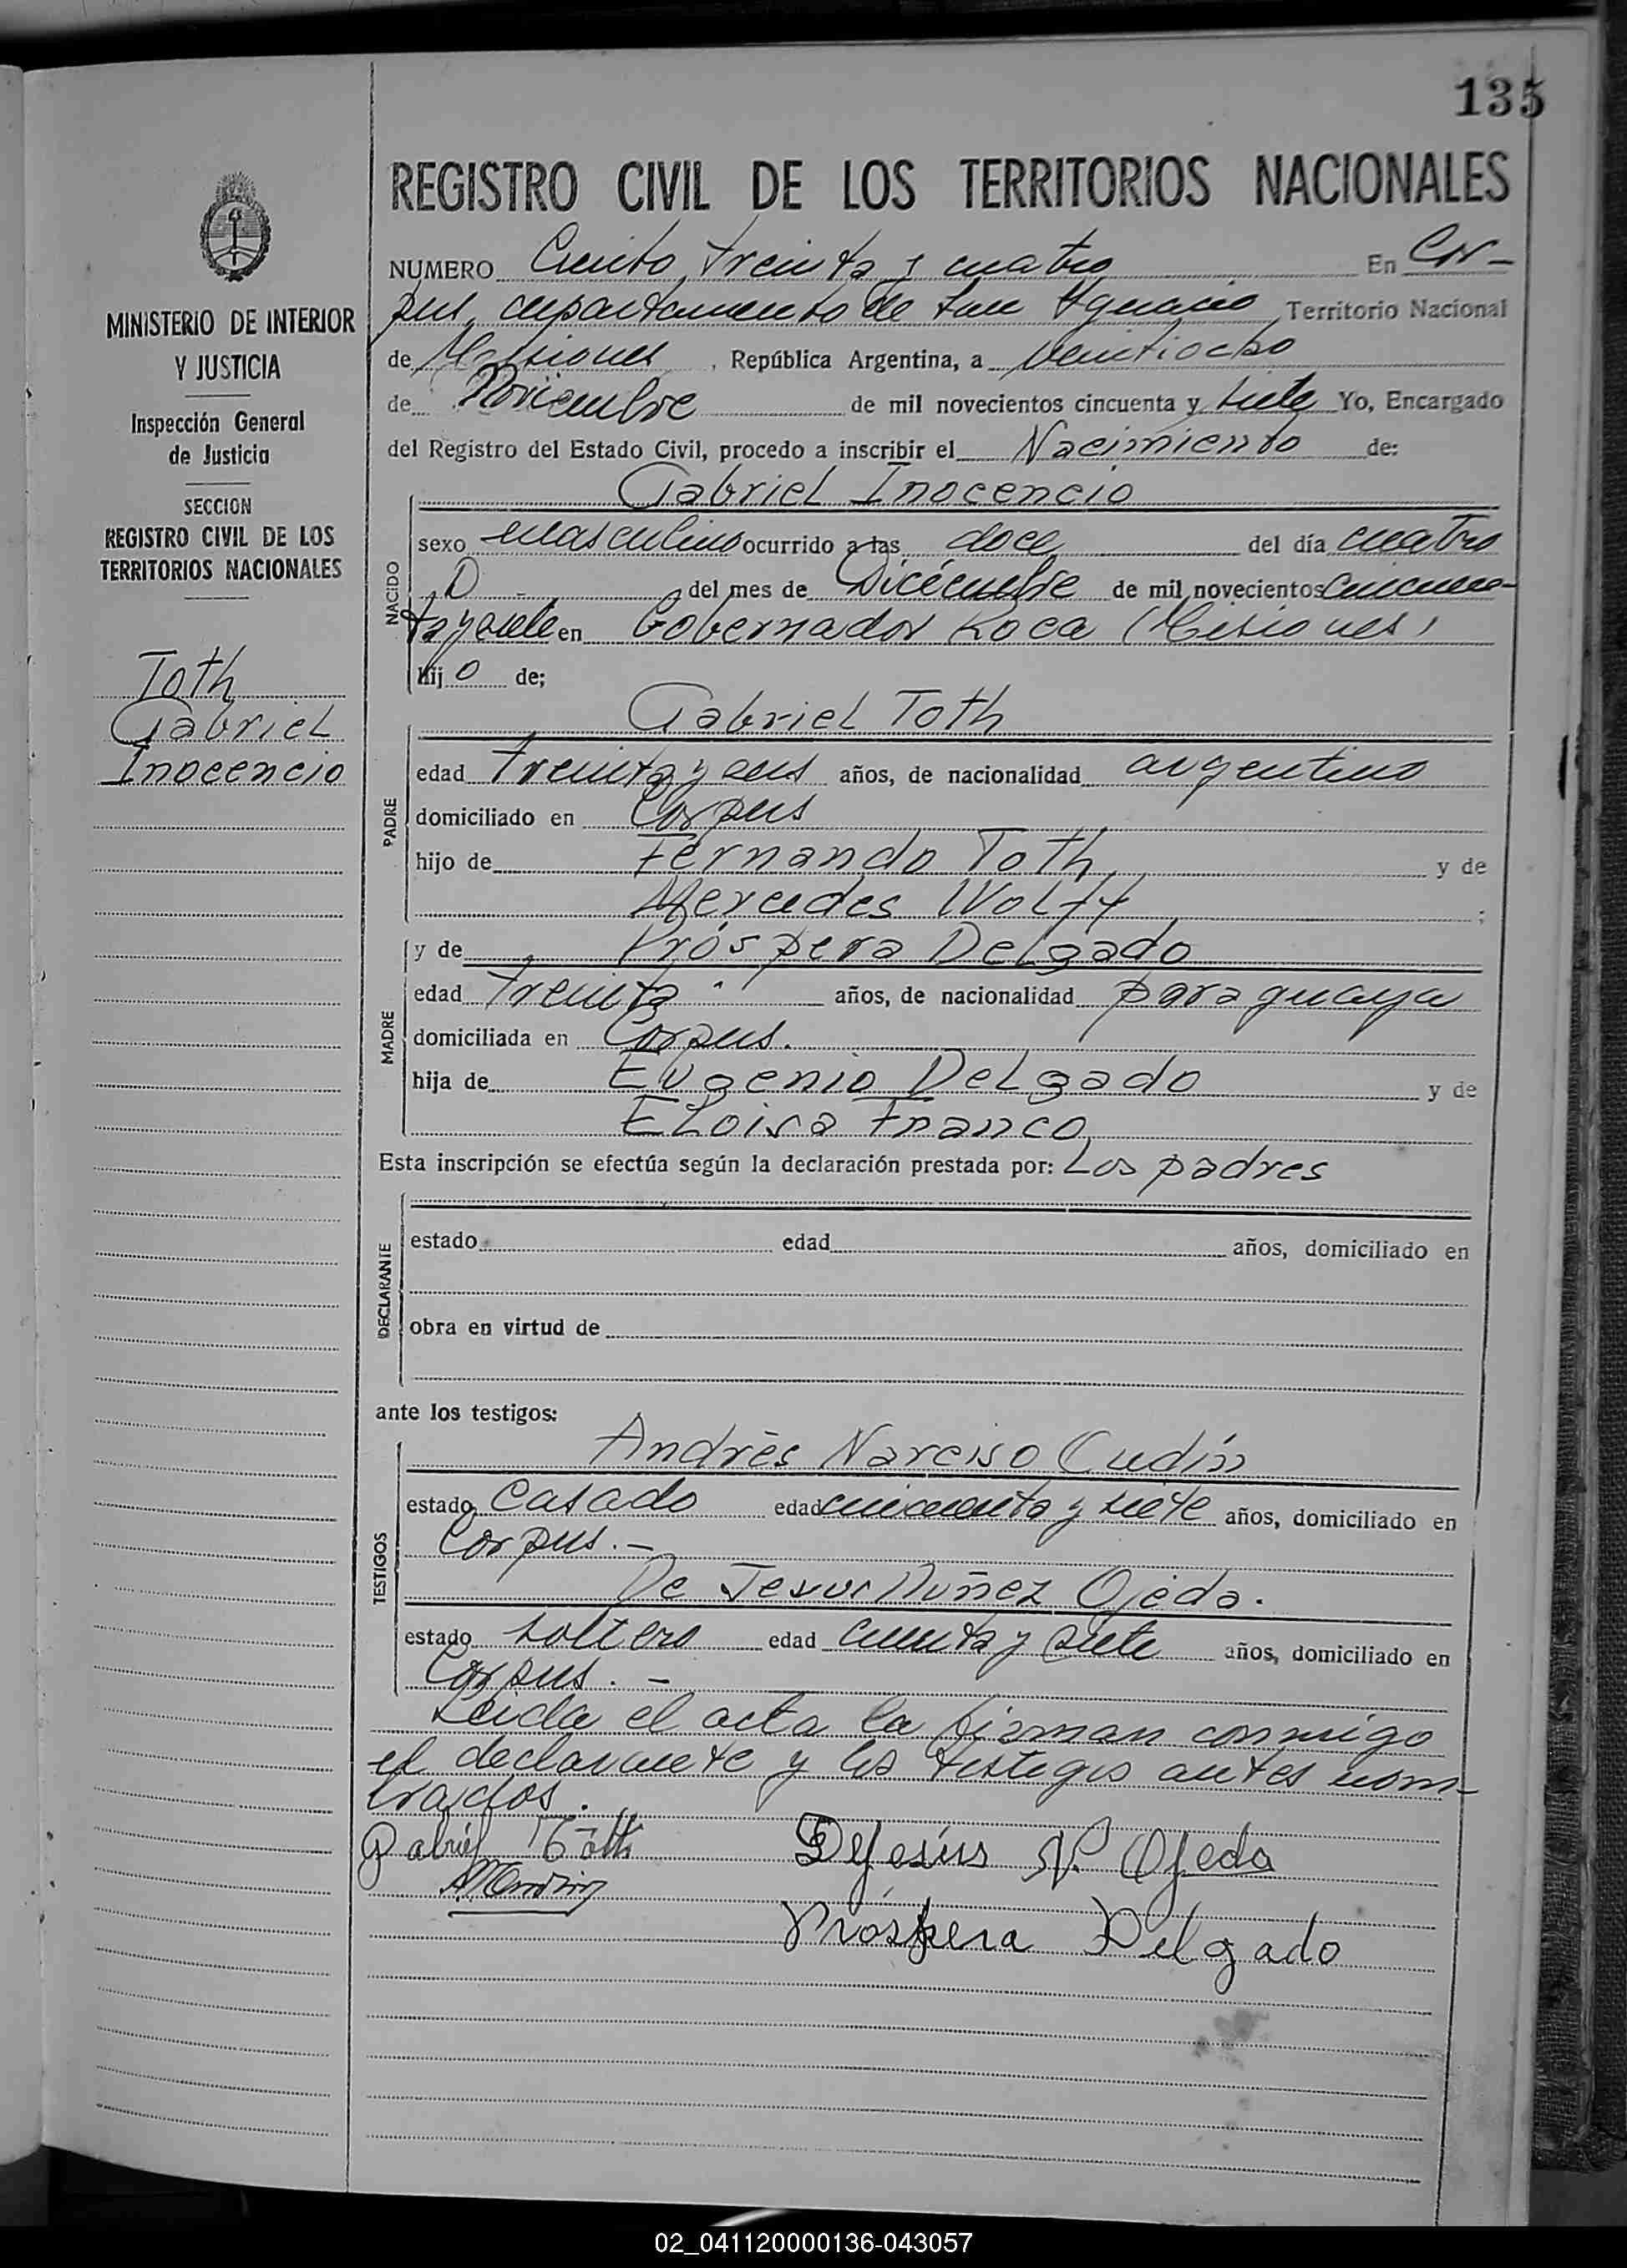 135
REGISTRO CIVIL DE LOS TERRITORIOS NACIONALES
NUMERO Ciento treinta y cuatro En Cor-
pus, departamento de San Ygnacio Territorio Nacional
de Misiones, República Argentina, a Veintiocho
de Noviembre de mil novecientos cincuenta y siete Yo, Encargado
del Registro del Estado Civil, procedo a inscribir el Nacimiento de:
MINISTERIO DE INTERIOR
Y JUSTICIA
Inspección General
de Justicia
SECCION
REGISTRO CIVIL DE LOS
TERRITORIOS NACIONALES
Toth
Gabriel
Inocencio
NACIDO
Gabriel Inocencio
sexo masculino ocurrido a las doce del día cuatro
del mes de Diciembre de mil novecientos cincuen-
ta y siete en Gobernador Roca (Misiones)
hijo de;
PADRE
Gabriel Toth
edad treinta y años, de nacionalidad argentino
domiciliado en Corpus
hijo de Fernando Toth y de
Mercedes Wolff ;
MADRE
y de Próspera Delgado
edad treinta años, de nacionalidad paraguaya
domiciliada en Corpus.
hija de Eugenio Delgado y de
Eloisa Franco
Esta inscripción se efectúa según la declaración prestada por: Los padres
DECLARANTE
estado edad años, domiciliado en
obra en virtud de
ante los testigos:
TESTIGOS
Andrès Narciso Cudín
estado Casado edad cincuenta y siete años, domiciliado en
Corpus.-
De Jesus Nuñez Ojeda.
estado soltero edad y siete años, domiciliado en
Corpus.-
Leida el acta la firman conmigo
el declarante y los testigos antes nom-
brados.
Gabriel Tóth DeJesús N. Ojeda
Próspera Delgado
02_041120000136-043057